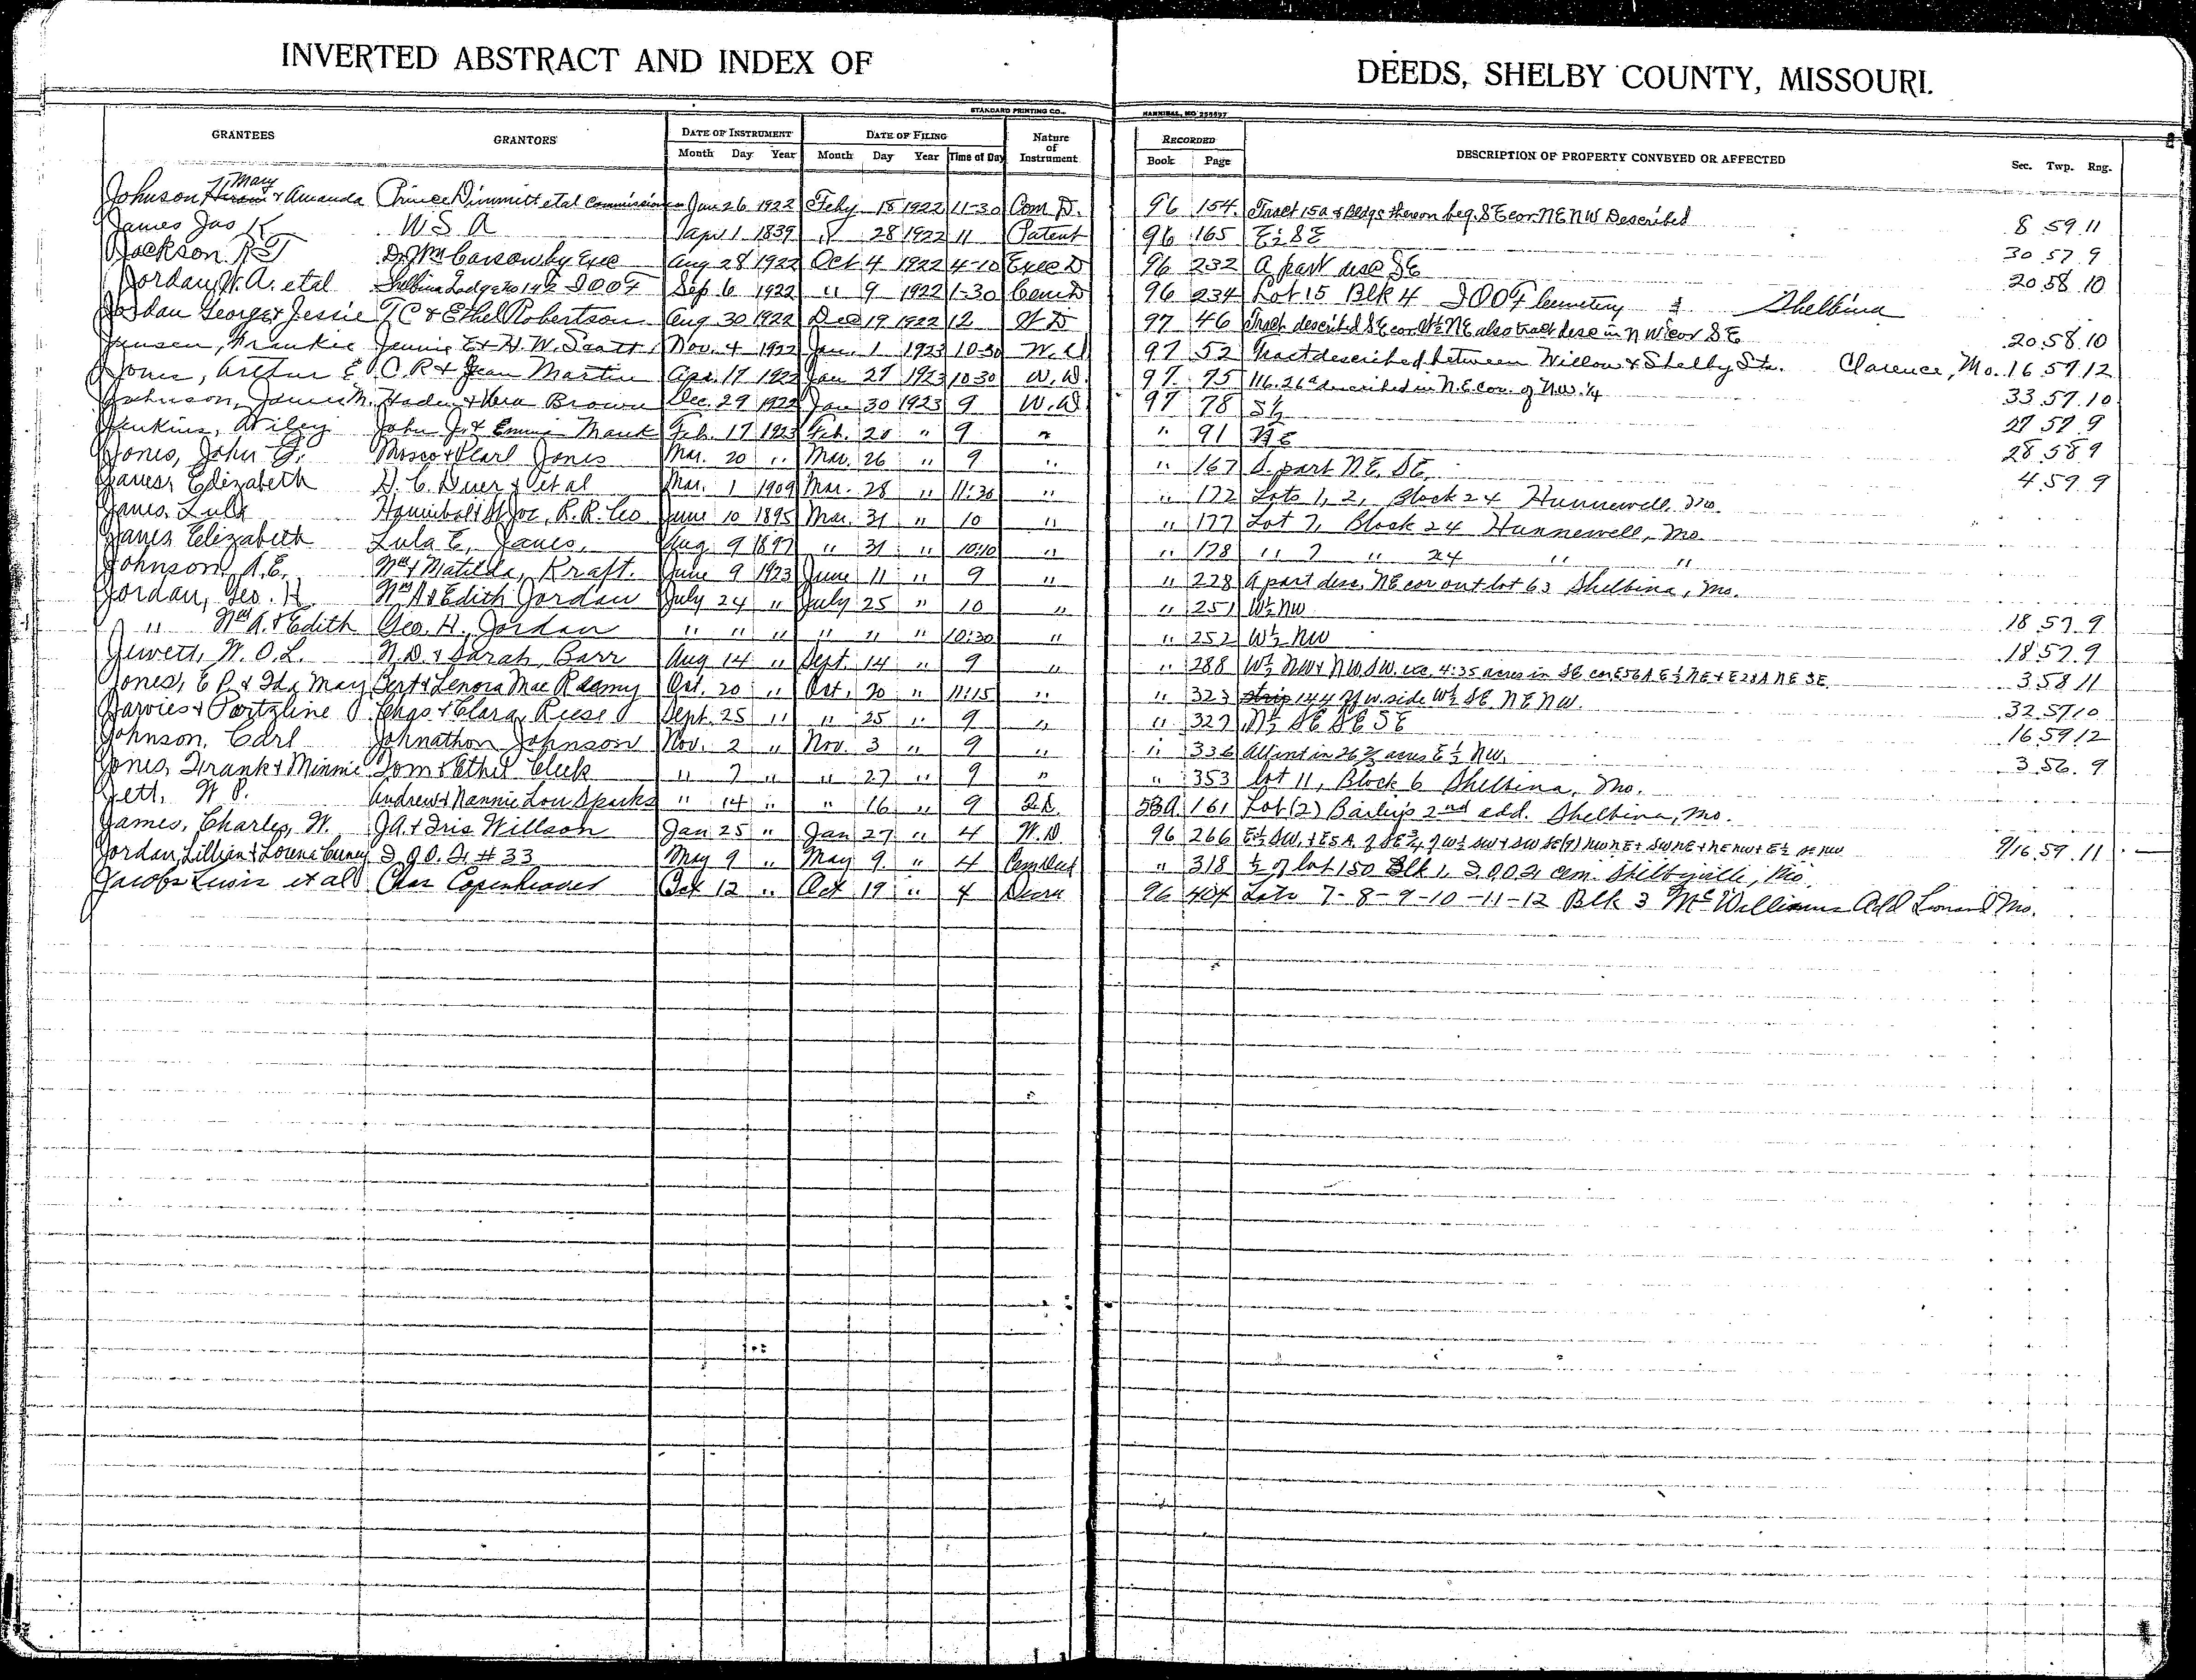 INVERTED ABSTRACT AND INDEX OF DEEDS, SHELBY COUNTY, MISSOURI.
STANDARD PRINTING CO., HANNIBAL, MO
GRANTEES GRANTORS DATE OF INSTRUMENT DATE OF FILING Nature of Instrument RECORDED DESCRIPTION OF PROPERTY CONVEYED OR AFFECTED Sec. Twp. Rng.
Month Day Year Month Day Year Time of Day Book Page
Mary
Johnson Hiram & Amanda Prince Dimmitt etal Commissioners Jan 26 1922 Feby 18 1922 11-30 Com D. 96 154 Tract 15a & Bldgs thereon beg. SE cor NE NW Described 8 59 11
James Jas K U S A Apr 1 1839 " 28 1922 11 Patent 96 165 E½ SE 30 57 9
Jackson R T D. Wm Carson by Exec Aug 28 1922 Oct 4 1922 4-10 Exec D 96 232 A part desc SE 20 58 10
Jordan, W. A. etal Shelbina Lodge No 142 IOOF Sep 6 1922 " 9 1922 1-30 Cem D 96 234 Lot 15 Blk 4 IOOF Cemetery Shelbina
Jordan George & Jessie T C & Ethel Robertson Aug 30 1922 Dec 19 1922 12 W D 97 46 Tract described SE cor W½ NE also tract desc in NW cor SE 20 58 10
Jensen, Frankie Jennie E & H. W. Scott Nov. 4 1922 Jan. 1 1923 10-30 W. D 97 52 Tract described between Willow & Shelby Sts. Clarence, Mo. 16 57 12
Jones, Arthur E C. R & Jean Martin Apr. 17 1922 Jan 27 1923 10 30 W. D. 97 75 116.26a described in N.E. cor. of N.W. ¼ 33 57 10
Johnson, James M. Haden & Vera Brown Dec. 29 1922 Jan 30 1923 9 W. D 97 78 S½ 27 57 9
Jenkins, Wiley John J. & Emma Mauk Feb. 17 1923 Feb. 20 " 9 " " 91 NE 28 58 9
Jones, John G. Mosco & Pearl Jones Mar. 20 " Mar. 26 " 9 " " 167 A. part NE, SE, 4 59 9
Janes, Elizabeth H. C. Duer & et al Mar. 1 1909 Mar. 28 " 11:30 " " 172 Lots 1, 2, Block 24 Hunnewell, Mo.
Janes, Lula Hannibal & St Joe, R.R. Co June 10 1895 Mar. 31 " 10 " " 177 Lot 7, Block 24 Hunnewell, Mo.
Janes Elizabeth Lula E, Janes, Aug 9 1897 " 31 " 10:10 " " 178 " 7 " 24 " "
Johnson, A. E. Wm & Matilda, Kraft. June 9 1923 June 11 " 9 " " 228 A part desc. NE cor out lot 63 Shelbina, Mo.
Jordan, Geo. H Wm A & Edith Jordan July 24 " July 25 " 10 " " 251 W½ NW 18 57 9
" Wm A. & Edith Geo. H. Jordan " " " " " " 10:30 " " 252 W½ NW 18 57 9
Jewett, W. O. L. N. D. & Sarah Barr Aug 14 " Sept. 14 " 9 " " 288 W½ NW & NW SW. exc. 4.35 acres in SE cor. E56A E½ NE & E28A NE SE 3 58 11
Jones, E P & Ida May Bert & Lenora Mae Oct. 20 " Oct. 20 " 11:15 " " 323 strip 144 off w. side W½ SE NE NW. 32 57 10
Jarvies & Portzline Chas & Clara Riese Sept. 25 " " 25 " 9 " " 327 N½ SE SE SE 16 59 12
Johnson, Carl Johnathon Johnson Nov. 2 " Nov. 3 " 9 " " 336 All int in 26⅔ acres E½ NW. 3 56 9
Jones, Frank & Minnie Tom & Ethel Cleek " 7 " " 27 " 9 " " 353 Lot 11, Block 6 Shelbina, Mo.
Jett, W P. Andrew & Nannie Lou Sparks " 14 " " 16 " 9 161 Lot (2) Bailey's 2nd add. Shelbina, Mo.
James, Charles, W. J A. & Iris Willson Jan 25 " Jan 27 " 4 W. D. 96 266 E½ SW. & E5A of W½ SW & SW SE (9) NW NE & SW NE & NE NW & E½ SE NW 9/16 59 11
Jordan, Lillian & I. O. O. F. # 33 May 9 " May 9. " 4 Cem Deed " 318 ½ of lot 150 Blk 1, I O O F cem. Shelbyville, Mo.
Jacobs Lewis et al Chas Copenhaver Oct 12 " Oct 19 " 4 96 404 Lots 7-8-9-10-11-12 Blk 3 McWilliams Add Leonard Mo.